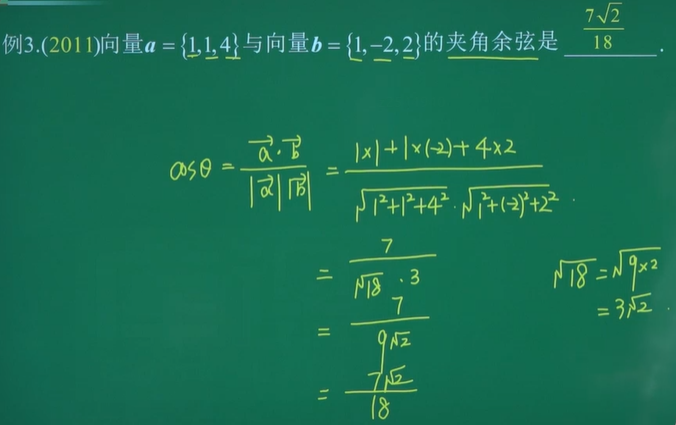 例3.(2011)向量a = {1,1,4}与向量b = {1,−2,2}的夹角余弦是 7√2/18 .
cosθ = a⃗·b⃗ / |a⃗||b⃗| = 1×1+1×(-2)+4×2 / √1²+1²+4² · √1²+(-2)²+2² .
= 7 / √18 · 3
√18 = √9×2
= 7 / 9√2
= 3√2 .
= 7√2 / 18